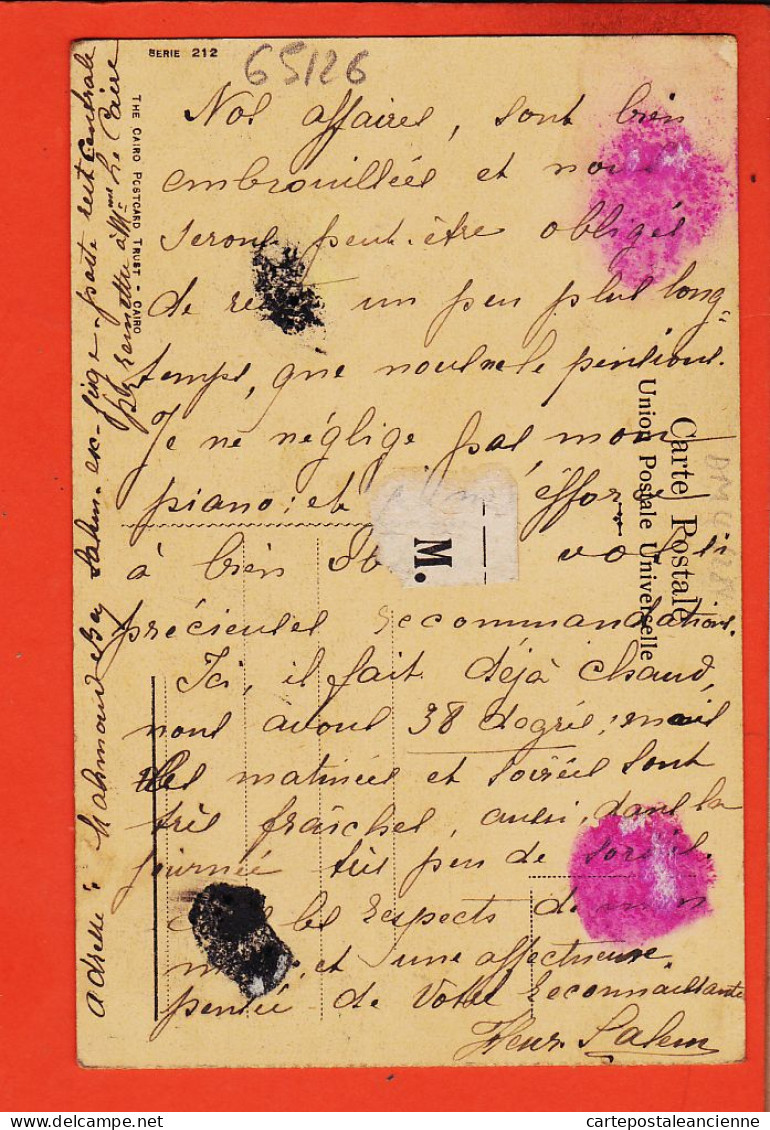 SERIE 212
65/26
THE CAIRO POSTCARD TRUST - CAIRO
Carte Postale
Union Postale Universelle
M.
Nos affaires, sont bien
embrouillées et nous
serons peut-être obligés
de un peu plus long=
temps, que nous ne le pensions.
Je ne néglige pas, mon
piano; et
à bien vos
précieuses recommandations.
Ici, il fait déjà chaud,
nous avons 38 degrés; mais
les matinées et soirées sont
très fraîches, aussi, dans la
journée très peu de
les respects de mon
et une affectueuse
pensée de Votre reconnaissante
Salem
adresse: Mahmoud Bey Salem. ex-juge. poste rest Centrale
pr remettre à Mme Le Caire